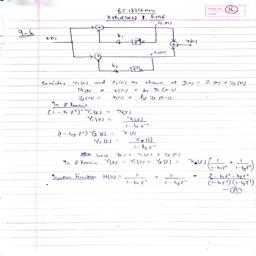 9.6
y₁(n)
x(n)
y(n)
b₁
z⁻¹
y₂(n)
b₂
z⁻¹
Consider y₁(n) and y₂(n) as shown y(n) = y₁(n) + y₂(n)
y₁(n) = x(n) + b₁ y₁(n-1)
y₂(n) = x(n) + b₂ y₂(n-1)
In z domain
(1 - b₁z⁻¹) Y₁(z) = X(z)
Y₁(z) = X(z) / (1 - b₁z⁻¹)
(1 - b₂z⁻¹) Y₂(z) = X(z)
Y₂(z) = X(z) / (1 - b₂z⁻¹)
y(n) = y₁(n) + y₂(n)
In z domain Y(z) = Y₁(z) + Y₂(z) = X(z) (1/(1 - b₁z⁻¹) + 1/(1 - b₂z⁻¹))
System Function H(z) = 1/(1 - b₁z⁻¹) + 1/(1 - b₂z⁻¹) = (2 - b₁z⁻¹ - b₂z⁻¹) / ((1 - b₁z⁻¹)(1 - b₂z⁻¹))
(A)